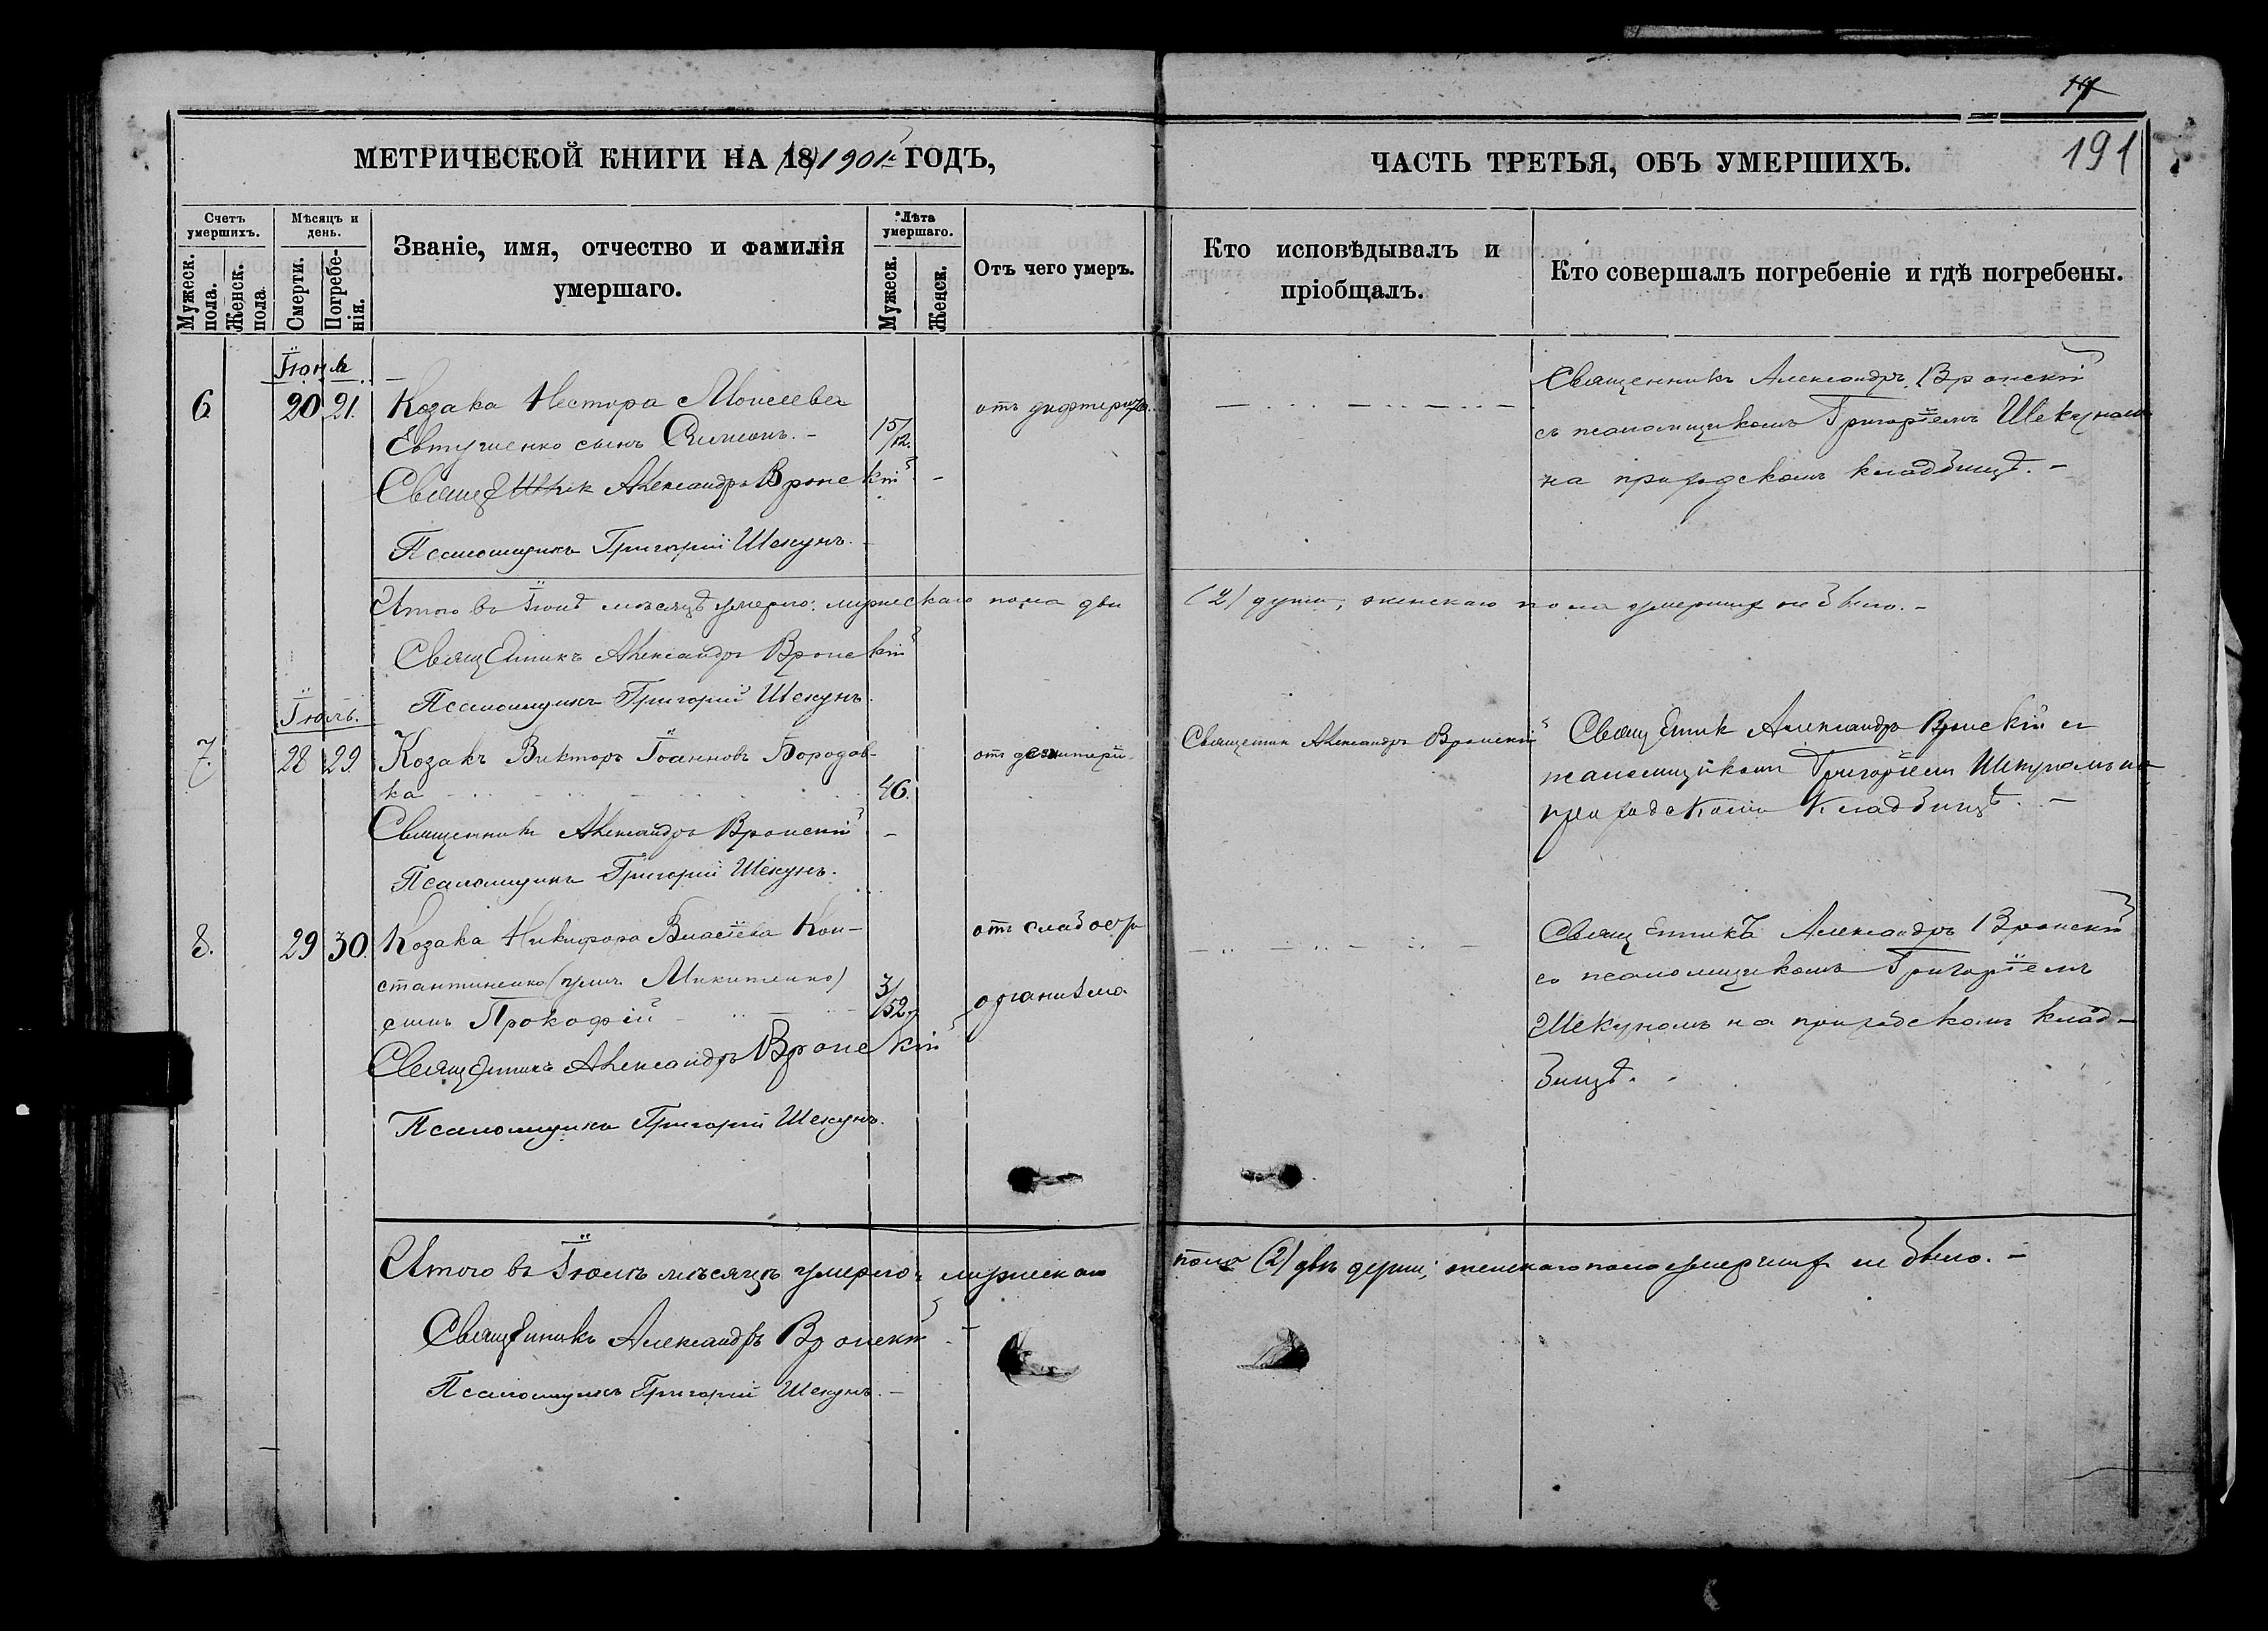 191
МЕТРИЧЕСКОЙ КНИГИ НА 18 1901 ГОДЪ,
ЧАСТЬ ТРЕТЬЯ, ОБЪ УМЕРШИХЪ.
Счетъ умершихъ.
Мужеск. пола.
Женск. пола
Мѣсяцъ и день.
Смерти.
Погребенія.
Званіе, имя, отчество и фамилія
умершаго.
Лѣта умершаго.
Мужеск.
Женск.
Отъ чего умеръ.
Кто исповѣдывалъ и
пріобщалъ.
Кто совершалъ погребеніе и гдѣ погребены.
Іюнь
6 20 21. Козака Нестора Моисеева
Евтушенко сынъ Симонъ. -
15/12.
отъ дифтерита.
Священникъ Александръ Вронскій
съ псаломщикомъ Григоріемъ Шекуномъ
на приходскомъ кладбищѣ. -
Священникъ Александръ Вронскій -
Псаломщикъ Григорій Шекунъ. -
Итого въ Іюнѣ мѣсяцѣ умерло: мужескаго пола двѣ
(2) души, женскаго пола умершихъ не было. -
Священникъ Александръ Вронскій
Псаломщикъ Григорій Шекунъ.
Іюль.
7. 28 29 Козакъ Викторъ Іоанновъ Бородав-
ка
46.
отъ дезинтеріи
Священникъ Александръ Вронскій
Священникъ Александръ Вронскій съ
псаломщикомъ Григоріемъ Шекуномъ на
приходскомъ кладбищѣ. -
Священникъ Александръ Вронскій -
Псаломщикъ Григорій Шекунъ.
8. 29 30. Козака Никифора Власіева Кон-
стантиненко (улич. Микитенко)
сынъ Прокофій
3/52.
отъ слабости
организма
Священникъ Александръ Вронскій
съ псаломщикомъ Григоріемъ
Шекуномъ на приходскомъ клад-
бищѣ.
Священникъ Александръ Вронскій
Псаломщикъ Григорій Шекунъ.
Итого въ Іюлѣ мѣсяцѣ умерло: мужескаго
пола (2) двѣ души; женскаго пола умершихъ не было. -
Священникъ Александръ Вронскій -
Псаломщикъ Григорій Шекунъ. -